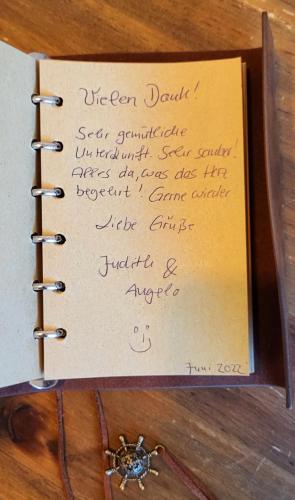 Vielen Dank!
Sehr gemütliche
Unterkunft. Sehr sauber!
Alles da, was das Herz
begehrt! Gerne wieder
Liebe Grüße
Judith &
Angelo
Juni 2022